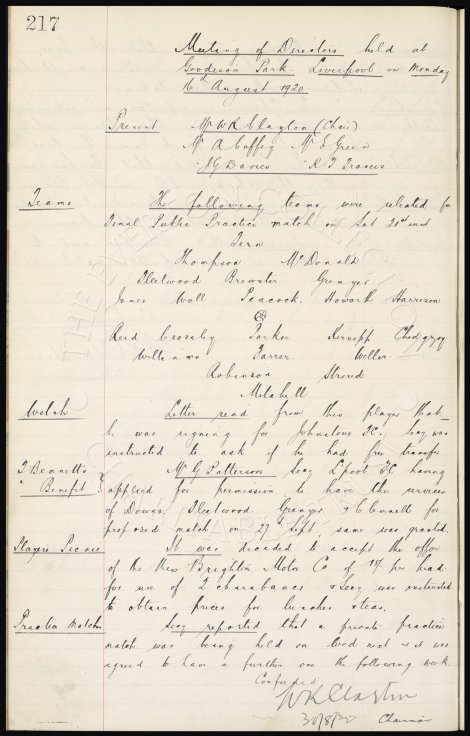 217
Meeting of Directors held at
Goodison Park Liverpool on Monday
16th August 1920
Present Mr W R Clayton (Chair)
Mr A Coffey Mr E Green
" J G Davies " R T Francis
Teams The following teams were selected for
Final Public Practice match on Sat 21st inst
Fern
Thompson McDonald
Fleetwood Brewster Grenyer
Jones Wall Peacock Howarth Harrison
Reid Crossley Parker Kirsopp Chedgzoy
Williams Farrer Weller
Robinson Stroud
Mitchell
Welsh Letter read from this player that
he was signing for Johnstone FC. Secy was
instructed to ask if he had free transfer
T Bennett's Mr G Patterson Secy L'pool FC having
" Benefit applied for permission to have the services
of Downs. Fleetwood. Grenyer & Clennell for
proposed match on 27th Sept, same was granted.
Players Picnic It was decided to accept the offer
of the New Brighton Motor Co of per head
for use of 2 charabancs & Secy was instructed
to obtain prices for lunches & teas.
Practice Matches Secy reported that a private practice
match was being held on Wed next & it was
agreed to have a further one the following week
Confirmed
W R Clayton
30/8/20 Chairman